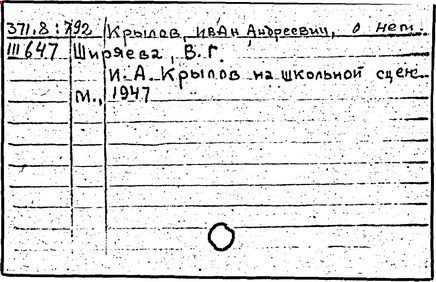 371.8:792 Крылов, Иван Андреевич, о нем.
III 647 Ширяева, В.Г.
И.А. Крылов на школьной сцен..
М., 1947